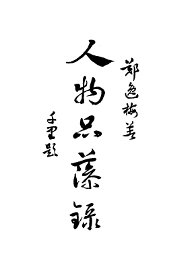 郑逸梅着
人物品藻録
千里题